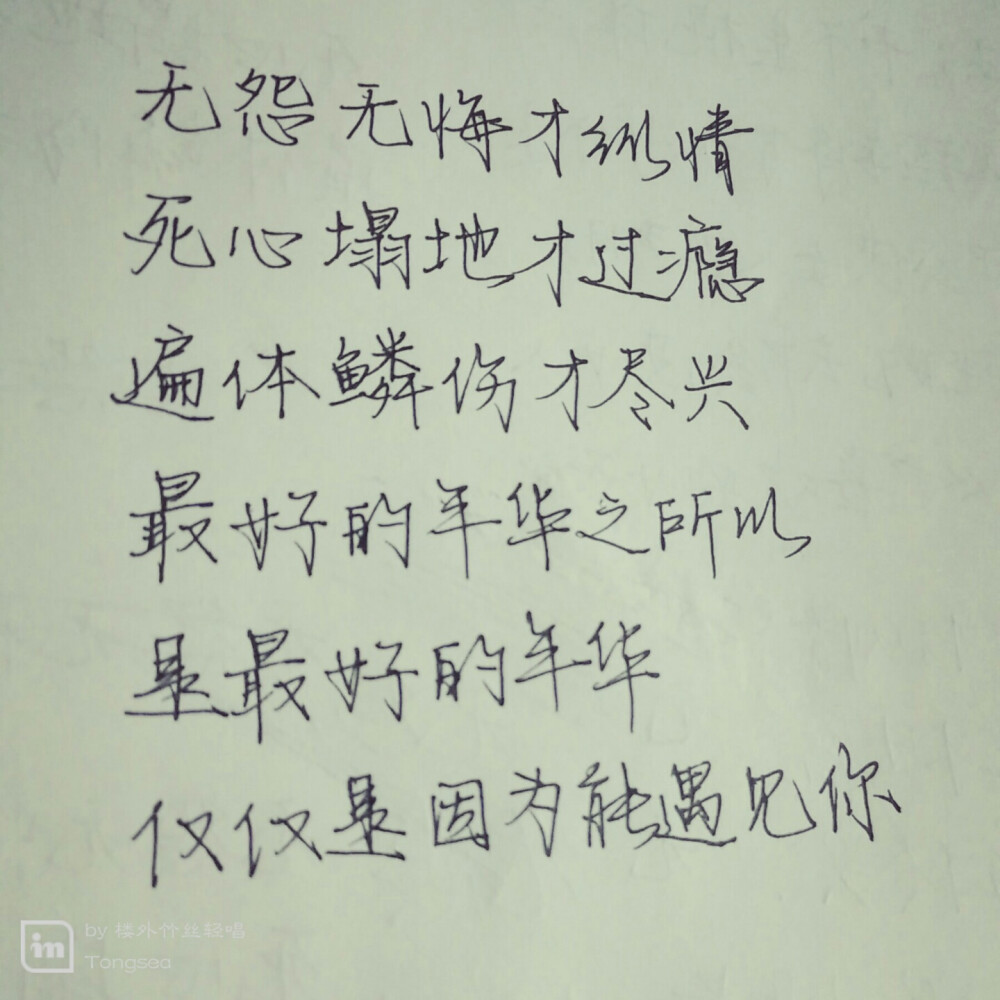 无怨无悔才纵情
死心塌地才过瘾
遍体鳞伤才尽兴
最好的年华之所以
是最好的年华
仅仅是因为能遇见你
im
by 楼外竹丝轻唱
Tongsea